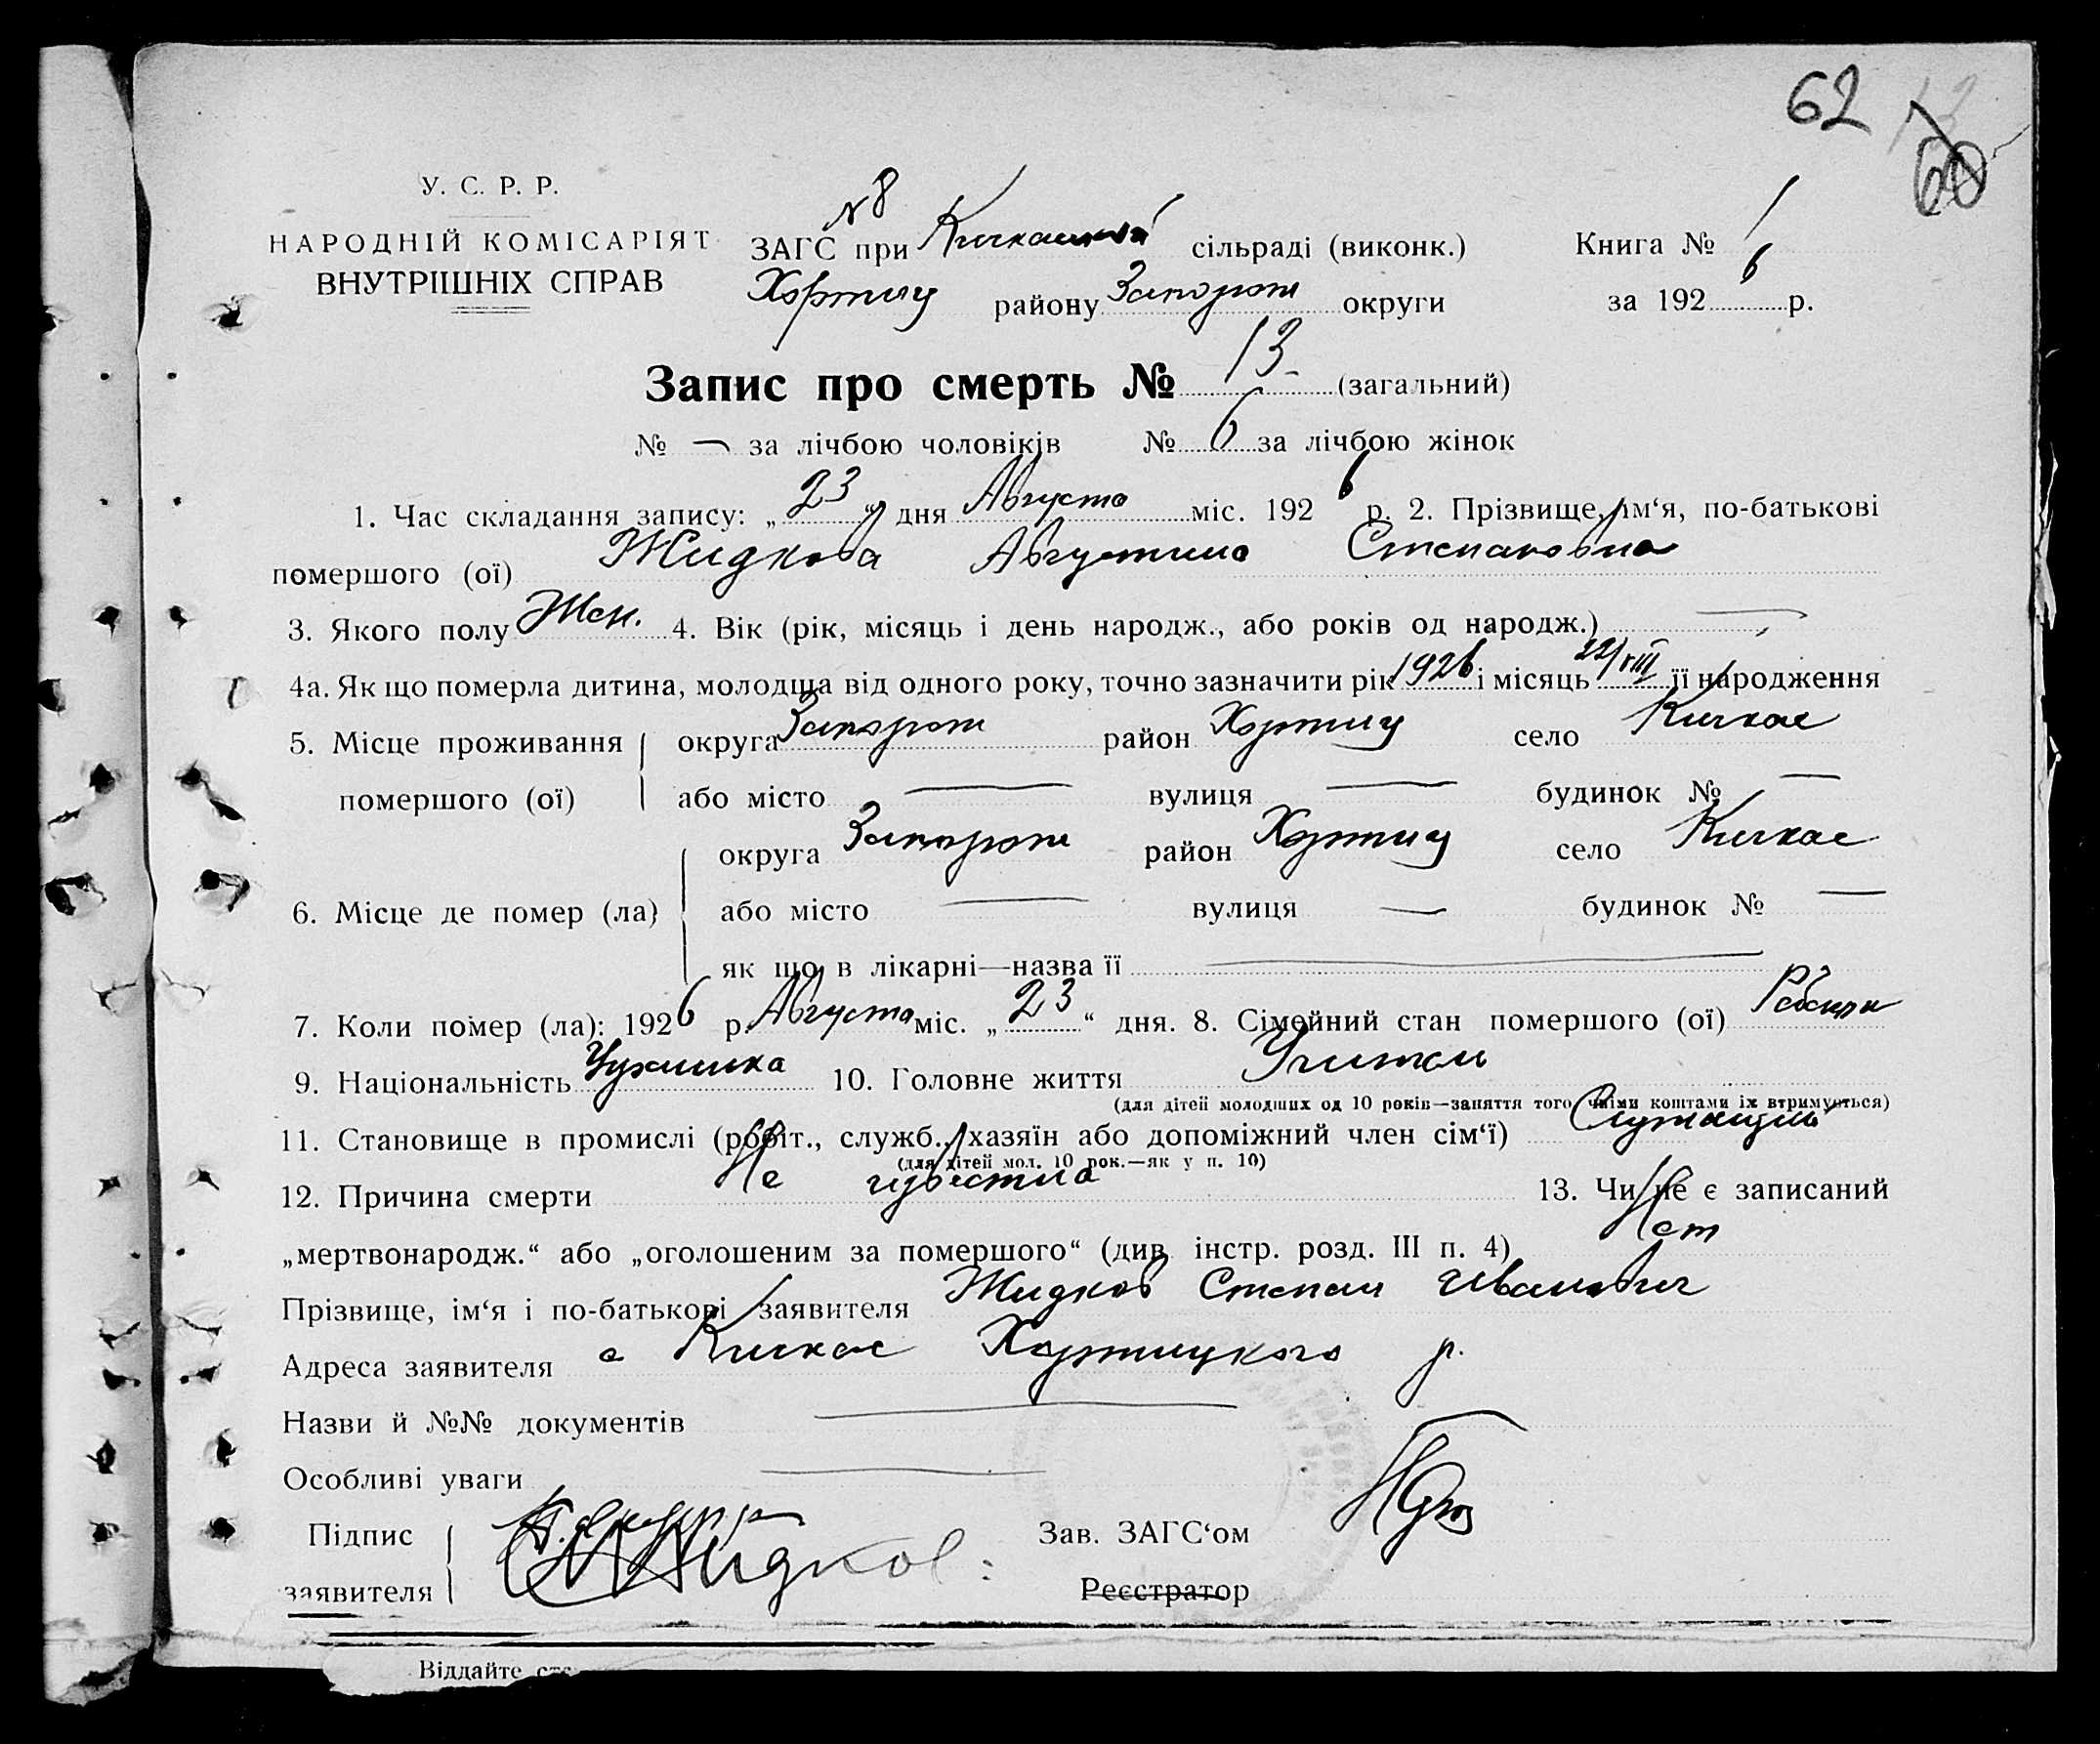 62
60
У. С. Р. Р.
НАРОДНІЙ КОМІСАРІЯТ
ВНУТРІШНІХ СПРАВ
N 8
ЗАГС при сільраді (виконк.) Книга № 1
Хортиц району Запорож округи за 1926 р.
Запис про смерть № 13 (загальний)
№ — за лічбою чоловіків № 6 за лічбою жінок
1. Час складання запису: „23“ дня Августа міс. 1926 р. 2. Прізвище, ім‘я, по-батькові
помершого (ої) Жидкова Августина Степановна
3. Якого полу Жен. 4. Вік (рік, місяць і день народж., або років од народж.) —
4а. Як що померла дитина, молодша від одного року, точно зазначити рік 1926 і місяць 22/VIII її народження
5. Місце проживання округа Запорож район Хортиц село Кичкас
помершого (ої) або місто — вулиця — будинок № —
округа Запорож район Хортиц село Кичкас
6. Місце де помер (ла) або місто — вулиця — будинок № —
як що в лікарні—назва її —
7. Коли помер (ла): 1926 р. Августа міс. „23“ дня. 8. Сімейний стан помершого (ої)
9. Національність 10. Головне життя Учитель
(для дітей молодших од 10 років—заняття того чиїми коштами їх втримується)
11. Становище в промислі (робіт., служб., хазяїн або допоміжний член сім‘ї) Служащий
(для дітей мол. 10 рок.—як у п. 10)
12. Причина смерти Не известна 13. Чи не є записаний
„мертвонародж.“ або „оголошеним за помершого“ (див. інстр. розд. III п. 4) Нет
Прізвище, ім‘я і по-батькові заявителя Жидков Степан Иванович
Адреса заявителя с Кичкас Хортицкого р.
Назви й №№ документів —
Особливі уваги —
Підпис Зав. ЗАГС‘ом
заявителя Жидков Реєстратор
Віддайте